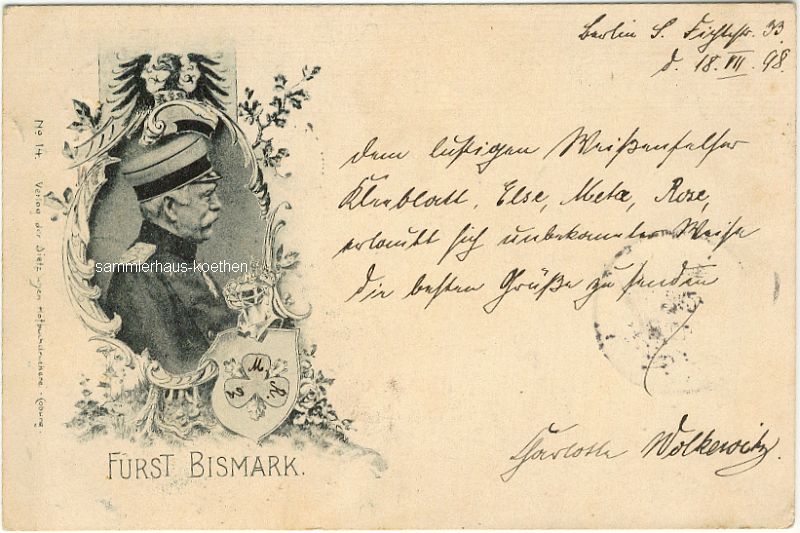 Berlin S. Fichtestr. 33.
d. 18. VII. 98.
Dem lustigen Weißenfelser
Kleeblatt, Else, Meta, Rose,
erlaubt sich unbekannter Weise
die besten Grüße zu senden
Charlotte Wolkewitz.
No 14. Verlag der Dietz'schen Hofbuchdruckerei. Coburg.
sammlerhaus-koethen
M.
E. R.
FÜRST BISMARK.